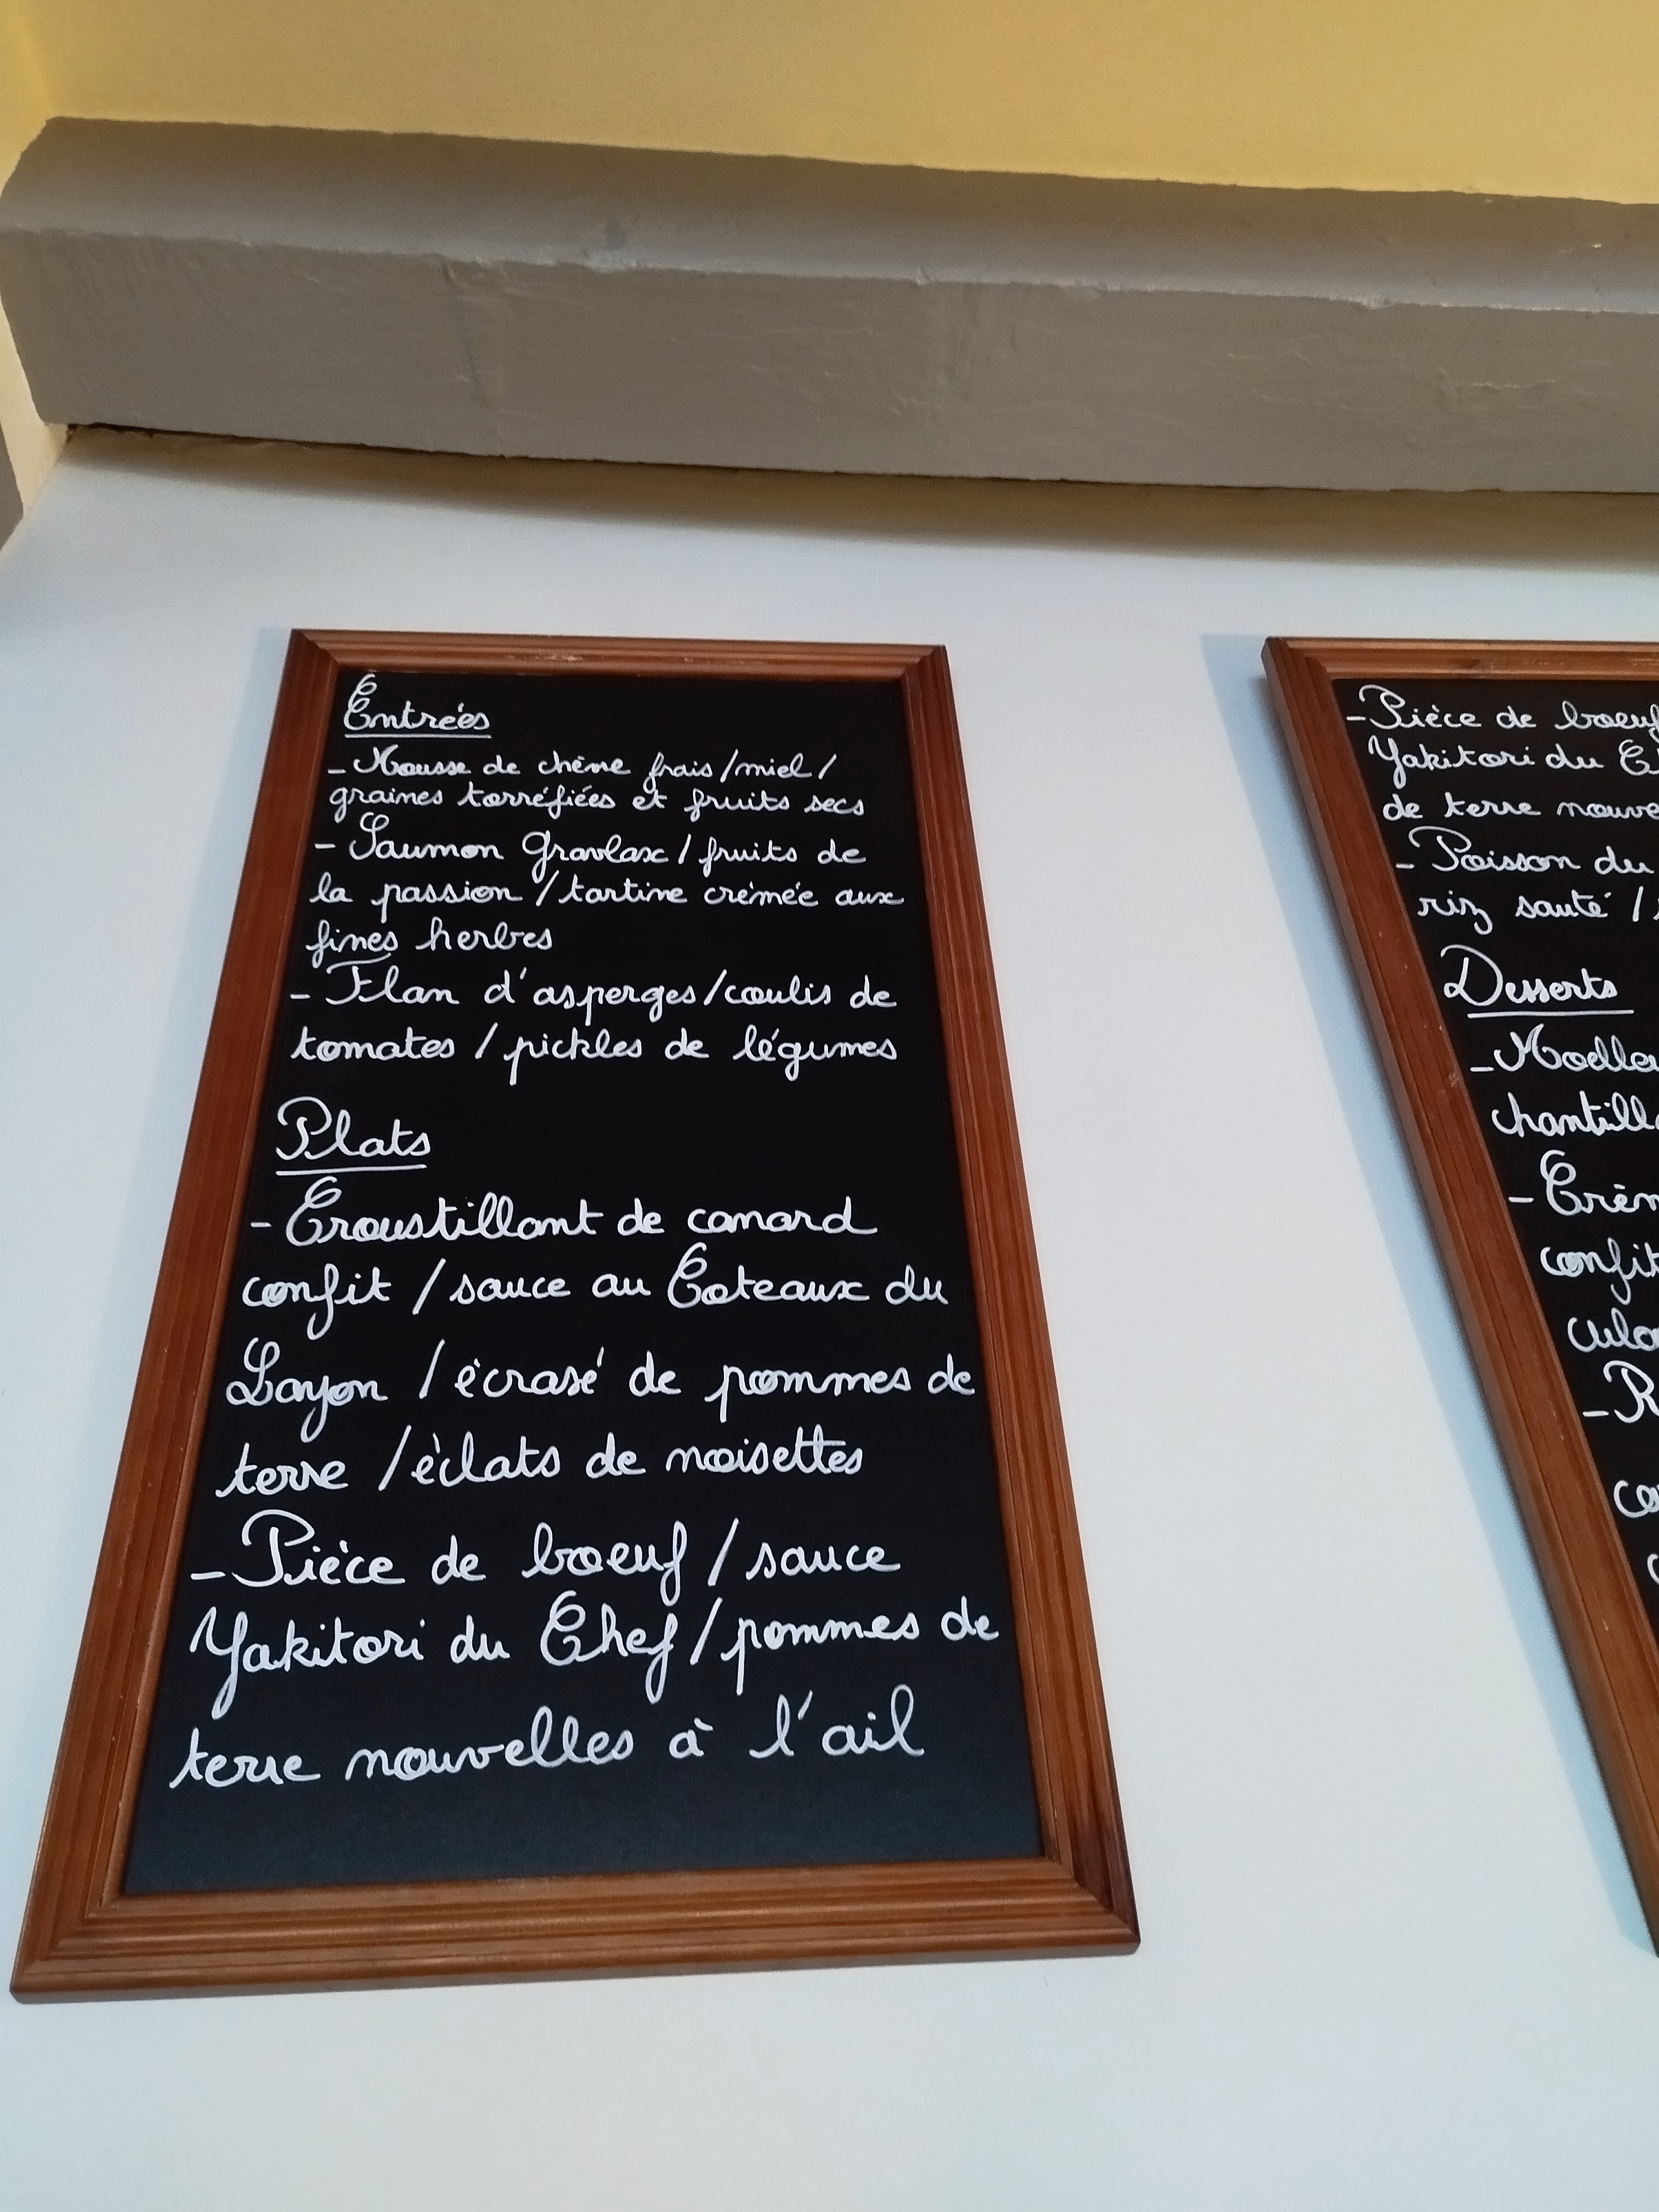 Entrées
- Mousse de chèvre frais / miel /
graines torréfiées et fruits secs
- Saumon Gravlax / fruits de
la passion / tartine crémée aux
fines herbes
- Flan d'asperges / coulis de
tomates / pickles de légumes
Plats
- Croustillant de canard
confit / sauce au Coteaux du
Layon / écrasé de pommes de
terre / éclats de noisettes
- Pièce de boeuf / sauce
Yakitori du Chef / pommes de
terre nouvelles à l'ail
- Pièce de boeuf
Yakitori du
de terre
- Poisson du
riz sauté /
Desserts